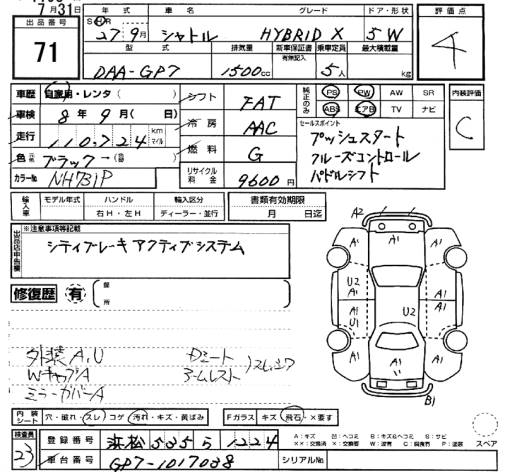 7月31日
出品番号 71
年式 車名 グレード ドア・形状 評価点
27年9月 シャトル HYBRID X 5W 4
型式 排気量 新車保証書 有無記入 乗車定員 最大積載量
DAA-GP7 1500cc 5人 kg
車歴 自家用・レンタ( )
車検 8年9月(日)
走行 110,724 km マイル
色 ブラック
カラーNo. NH731P
シフト FAT
冷房 AAC
燃料 G
リサイクル料金 9600円
純正のみ PS PW AW SR
ABS エアB TV ナビ
内装評価 C
セールスポイント
プッシュスタート
クルーズコントロール
パドルシフト
輸入車 モデル年式 ハンドル 輸入区分 書類有効期限
右H・左H ディーラー・並行 月 日迄
※注意事項等記載
シティブレーキアクティブシステム
修復歴 有 箇所
外装A,U
WキャブA
ミラーカバーA
Dシート
アームレスト
スレ
A2 A1
A1 A1 A1
U2 A1 U2 A1
A1 U1 A1
A1 A1 A1
B1
内装シート 穴・破れ・スレ・コゲ・汚れ・キズ・黄ばみ Fガラス キズ・飛石・×要す
検査員 23
登録番号 浜松 535 ら 1224
車台番号 GP7-1017038 シリアルNo.
A:キズ U:ヘコミ B:キズ&ヘコミ S:サビ
××:交換済 ×:要交換 W:波 C:腐食有 P:塗装
スペア